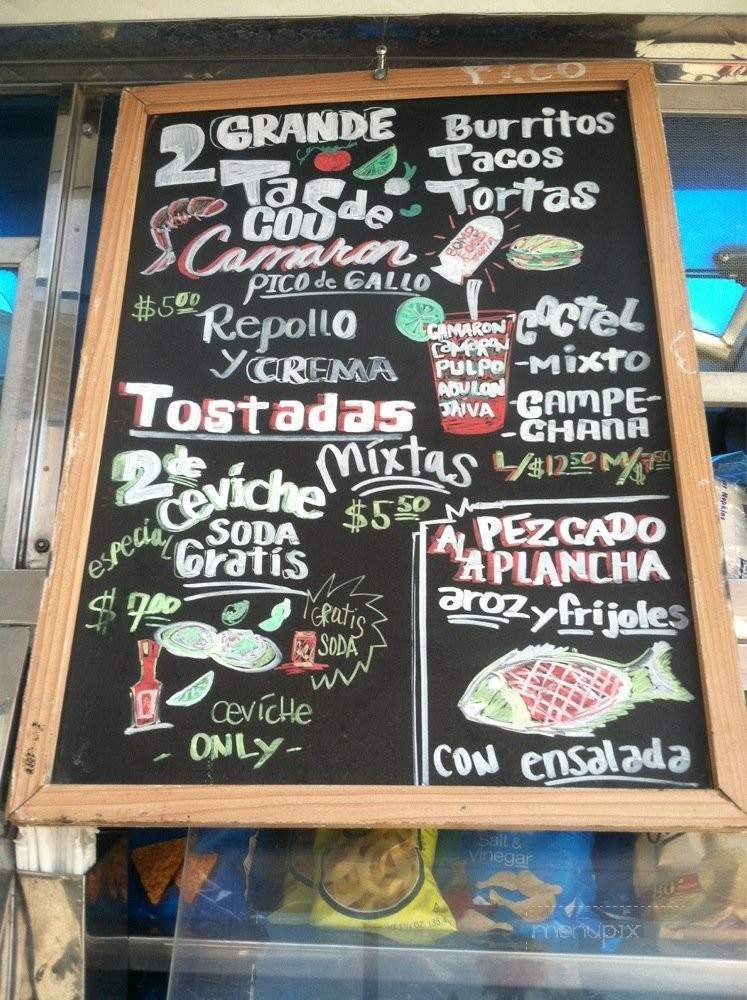 2 GRANDE
TaCOUS de
Camaron
PICO de GALLO
$5.00
Repollo
y CREMA
Burritos
Tacos
Tortas
CAMARON
PULPO
JAIVA
COCTEL
-MIXTO
-CAMPE-
-CHANA
L/$12.50 M/$7.50
Tostadas
Mixtas
$5.50
2 de
ceviche
SODA
Gratis
especial
$7.00
Gratis
SODA
ceviche
- ONLY -
AL PEZCADO
APLANCHA
aroz y frijoles
CON ensalada
Salt &
Vinegar
menupix